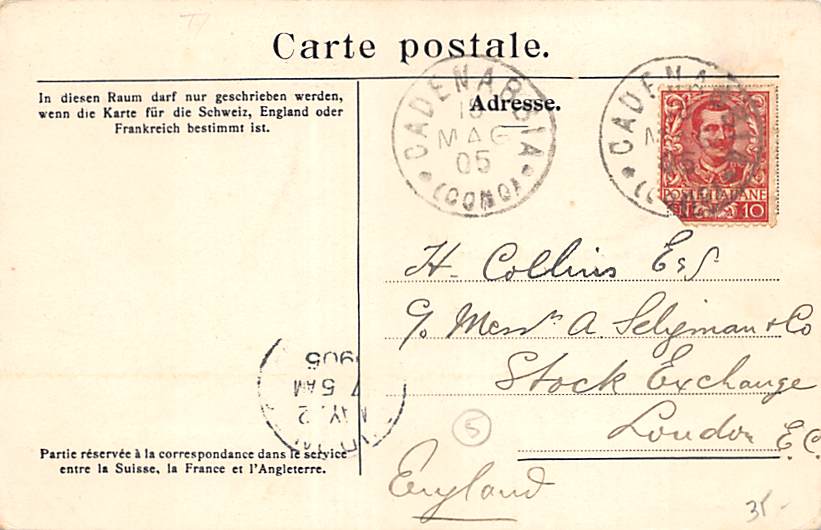 Carte postale.
In diesen Raum darf nur geschrieben werden,
wenn die Karte für die Schweiz, England oder
Frankreich bestimmt ist.
Adresse.
CADENABBIA
MAG
05
(COMO)
CADENABBIA
(COMO)
POSTE ITALIANE
10
H. Collins Esq.
c/o Messrs A. Seligman & Co
Stock Exchange
London E.C.
England
1905
7 5 AM
MY 2
Partie réservée à la correspondance dans le service
entre la Suisse, la France et l'Angleterre.
5
35-